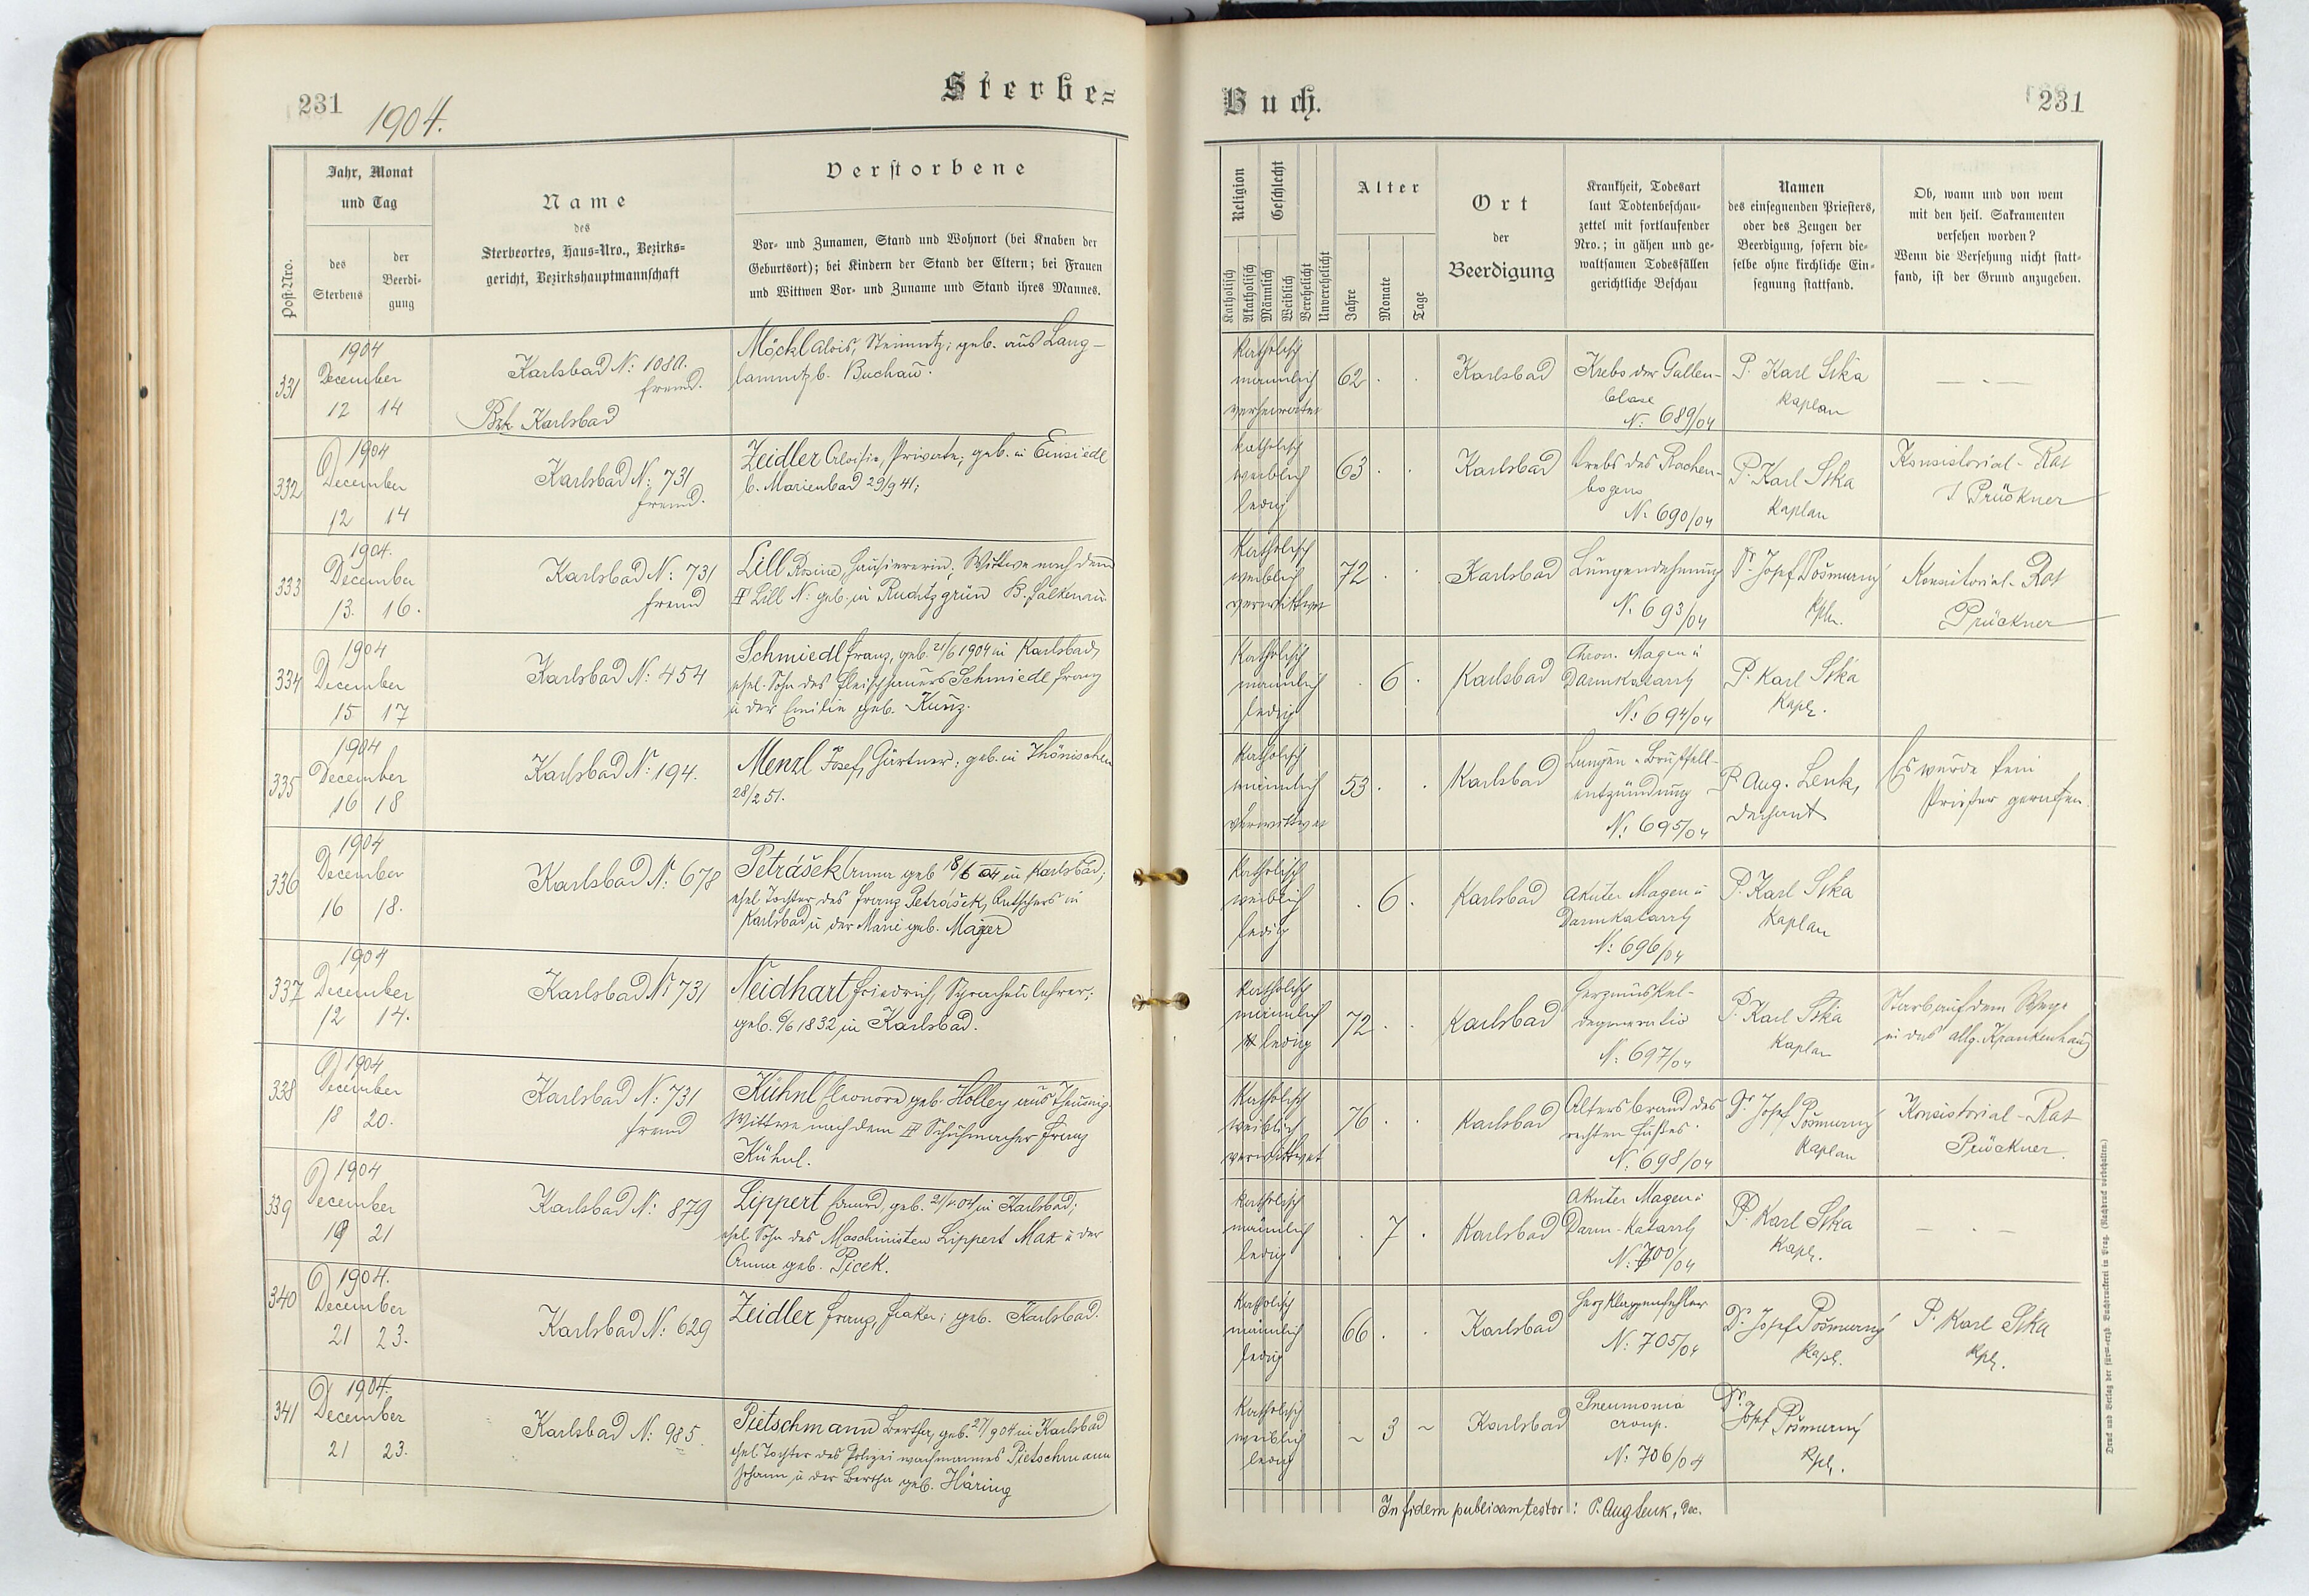 231
1904.
Sterbe=
Post-Nro.
Jahr, Monat
und Tag
des
Sterbens
der
Beerdi=
gung
Name
des
Sterbeortes, Haus-Nro., Bezirks=
gericht, Bezirkshauptmannschaft
Verstorbene
Vor- und Zunamen, Stand und Wohnort (bei Knaben der
Geburtsort); bei Kindern der Stand der Eltern; bei Frauen
und Wittwen Vor- und Zuname und Stand ihres Mannes.
331
1904
December
12 14
Karlsbad N: 1080.
fremd.
Bzk. Karlsbad
Möckl Alois, Steinmetz; geb. aus Lang-
lamnitz b. Buchau.
332
1904
December
12 14
Karlsbad N: 731
fremd.
Zeidler Aloisia, Private; geb. in Einsiedl
b. Marienbad 29/9 41;
333
1904.
December
13. 16.
Karlsbad N: 731
fremd
Lill Rosina, Hausiererin; Wittwe nach dem
Lill N: geb. in Ruditzgrün B. Falkenau.
334
1904
December
15 17
Karlsbad N: 454
Schmiedl Franz, geb. 21/6 1904 in Karlsbad,
ehel. Sohn des Fleischhauers Schmiedl Franz
u der Emilie geb. Kunz.
335
1904
December
16 18
Karlsbad N: 194.
Menzl Josef, Gärtner; geb. in Thönischen
28/2 51.
336
1904
December
16 18.
Karlsbad N: 678
Petrášek Anna geb 18/6 04 in Karlsbad;
ehel. Tochter des Franz Petrášek, Kutschers in
Karlsbad u der Marie geb. Mager
337
1904
December
12 14.
Karlsbad N: 731
Neidhart Friedrich, Sprachenlehrer;
geb. 6/6 1832 in Karlsbad.
338
1904
December
18 20.
Karlsbad N: 731
fremd
Kühnl Eleonora geb. Holley aus Theusing.
Wittwe nach dem Schuhmacher Franz
Kühnl.
339
1904
December
19 21
Karlsbad N: 879
Lippert Eduard, geb. 21/4 04 in Karlsbad;
ehel. Sohn des Maschinisten Lippert Max u der
Anna geb. Picek.
340
1904.
December
21 23.
Karlsbad N: 629
Zeidler Franz, Fiaker; geb. Karlsbad.
341
1904.
December
21 23.
Karlsbad N: 985.
Pietschmann Bertha, geb. 27/9 04 in Karlsbad
ehel. Tochter des Polizeiwachmannes Pietschmann
Johann u der Bertha geb. Häring
Buch.
231
Religion
Katholisch
Akatholisch
Geschlecht
Männlich
Weiblich
Verehelicht
Unverehelicht
Alter
Jahre
Monate
Tage
Ort
der
Beerdigung
Krankheit, Todesart
laut Todtenbeschau=
zettel mit fortlaufender
Nro.; in gähen und ge=
waltsamen Todesfällen
gerichtliche Beschau
Namen
des einsegnenden Priesters,
oder des Zeugen der
Beerdigung, sofern die=
selbe ohne kirchliche Ein=
segnung stattfand.
Ob, wann und von wem
mit den heil. Sakramenten
versehen worden?
Wenn die Versehung nicht statt=
fand, ist der Grund anzugeben.
Katholisch
männlich
verheiratet
62
Karlsbad
Krebs der Gallen-
blase
N: 689/04
P. Karl Sika
Kaplan
katholisch
weiblich
ledig
63
Karlsbad
Krebs des Rachen-
bogens
N. 690/04
P. Karl Sika
Kaplan
Konsistorial-Rat
J Prückner
Katholisch
weiblich
verwittwet
72
Karlsbad
Lungendehnung
N. 693/04
Dr. Josef Pošmurný
Kpln.
Konsistorial-Rat
Prückner
Katholisch
männlich
ledig
6
Karlsbad
Chron. Magen u
Darmkatarrh
N: 694/04
P. Karl Sika
Kapl.
Katholisch
männlich
verwittwet
53
Karlsbad
Lungen u Brustfell-
entzündung
N: 695/04
P Aug. Lenk,
Dechant
Es wurde kein
Priester gerufen.
Katholisch
weiblich
ledig
6
Karlsbad
Akuter Magen u
Darmkatarrh
N: 696/04
P. Karl Sika
Kaplan
Katholisch
männlich
ledig
72
Karlsbad
Herzmuskel-
degeneratio
N: 697/04
P. Karl Sika
Kaplan
Starb auf dem Wege
in das allg. Krankenhaus
Katholisch
weiblich
verwittwet
76
Karlsbad
Altersbrand des
rechten Fußes.
N: 698/04
Dr. Josef Pošmurný
Kaplan
Konsistorial-Rat
Prückner.
Katholisch
männlich
ledig
7
Karlsbad
Akuter Magen u
Darm-katarrh
N: 700/04
P. Karl Sika
Kapl.
Katholisch
männlich
ledig
66
Karlsbad
Herzklappenfehler
N: 705/04
Dr. Josef Pošmurný
Kapl.
P. Karl Sika
Kpl.
Katholisch
weiblich
ledig
3
Karlsbad
Pneumonia
croup.
N: 706/04
Dr.
Josef Pošmurný
Kpl.
In fidem publicam testor: P. Aug Lenk, Dec.
Druck und Verlag der fürst-erzb. Buchdruckerei in Prag. (Nachdruck vorbehalten.)